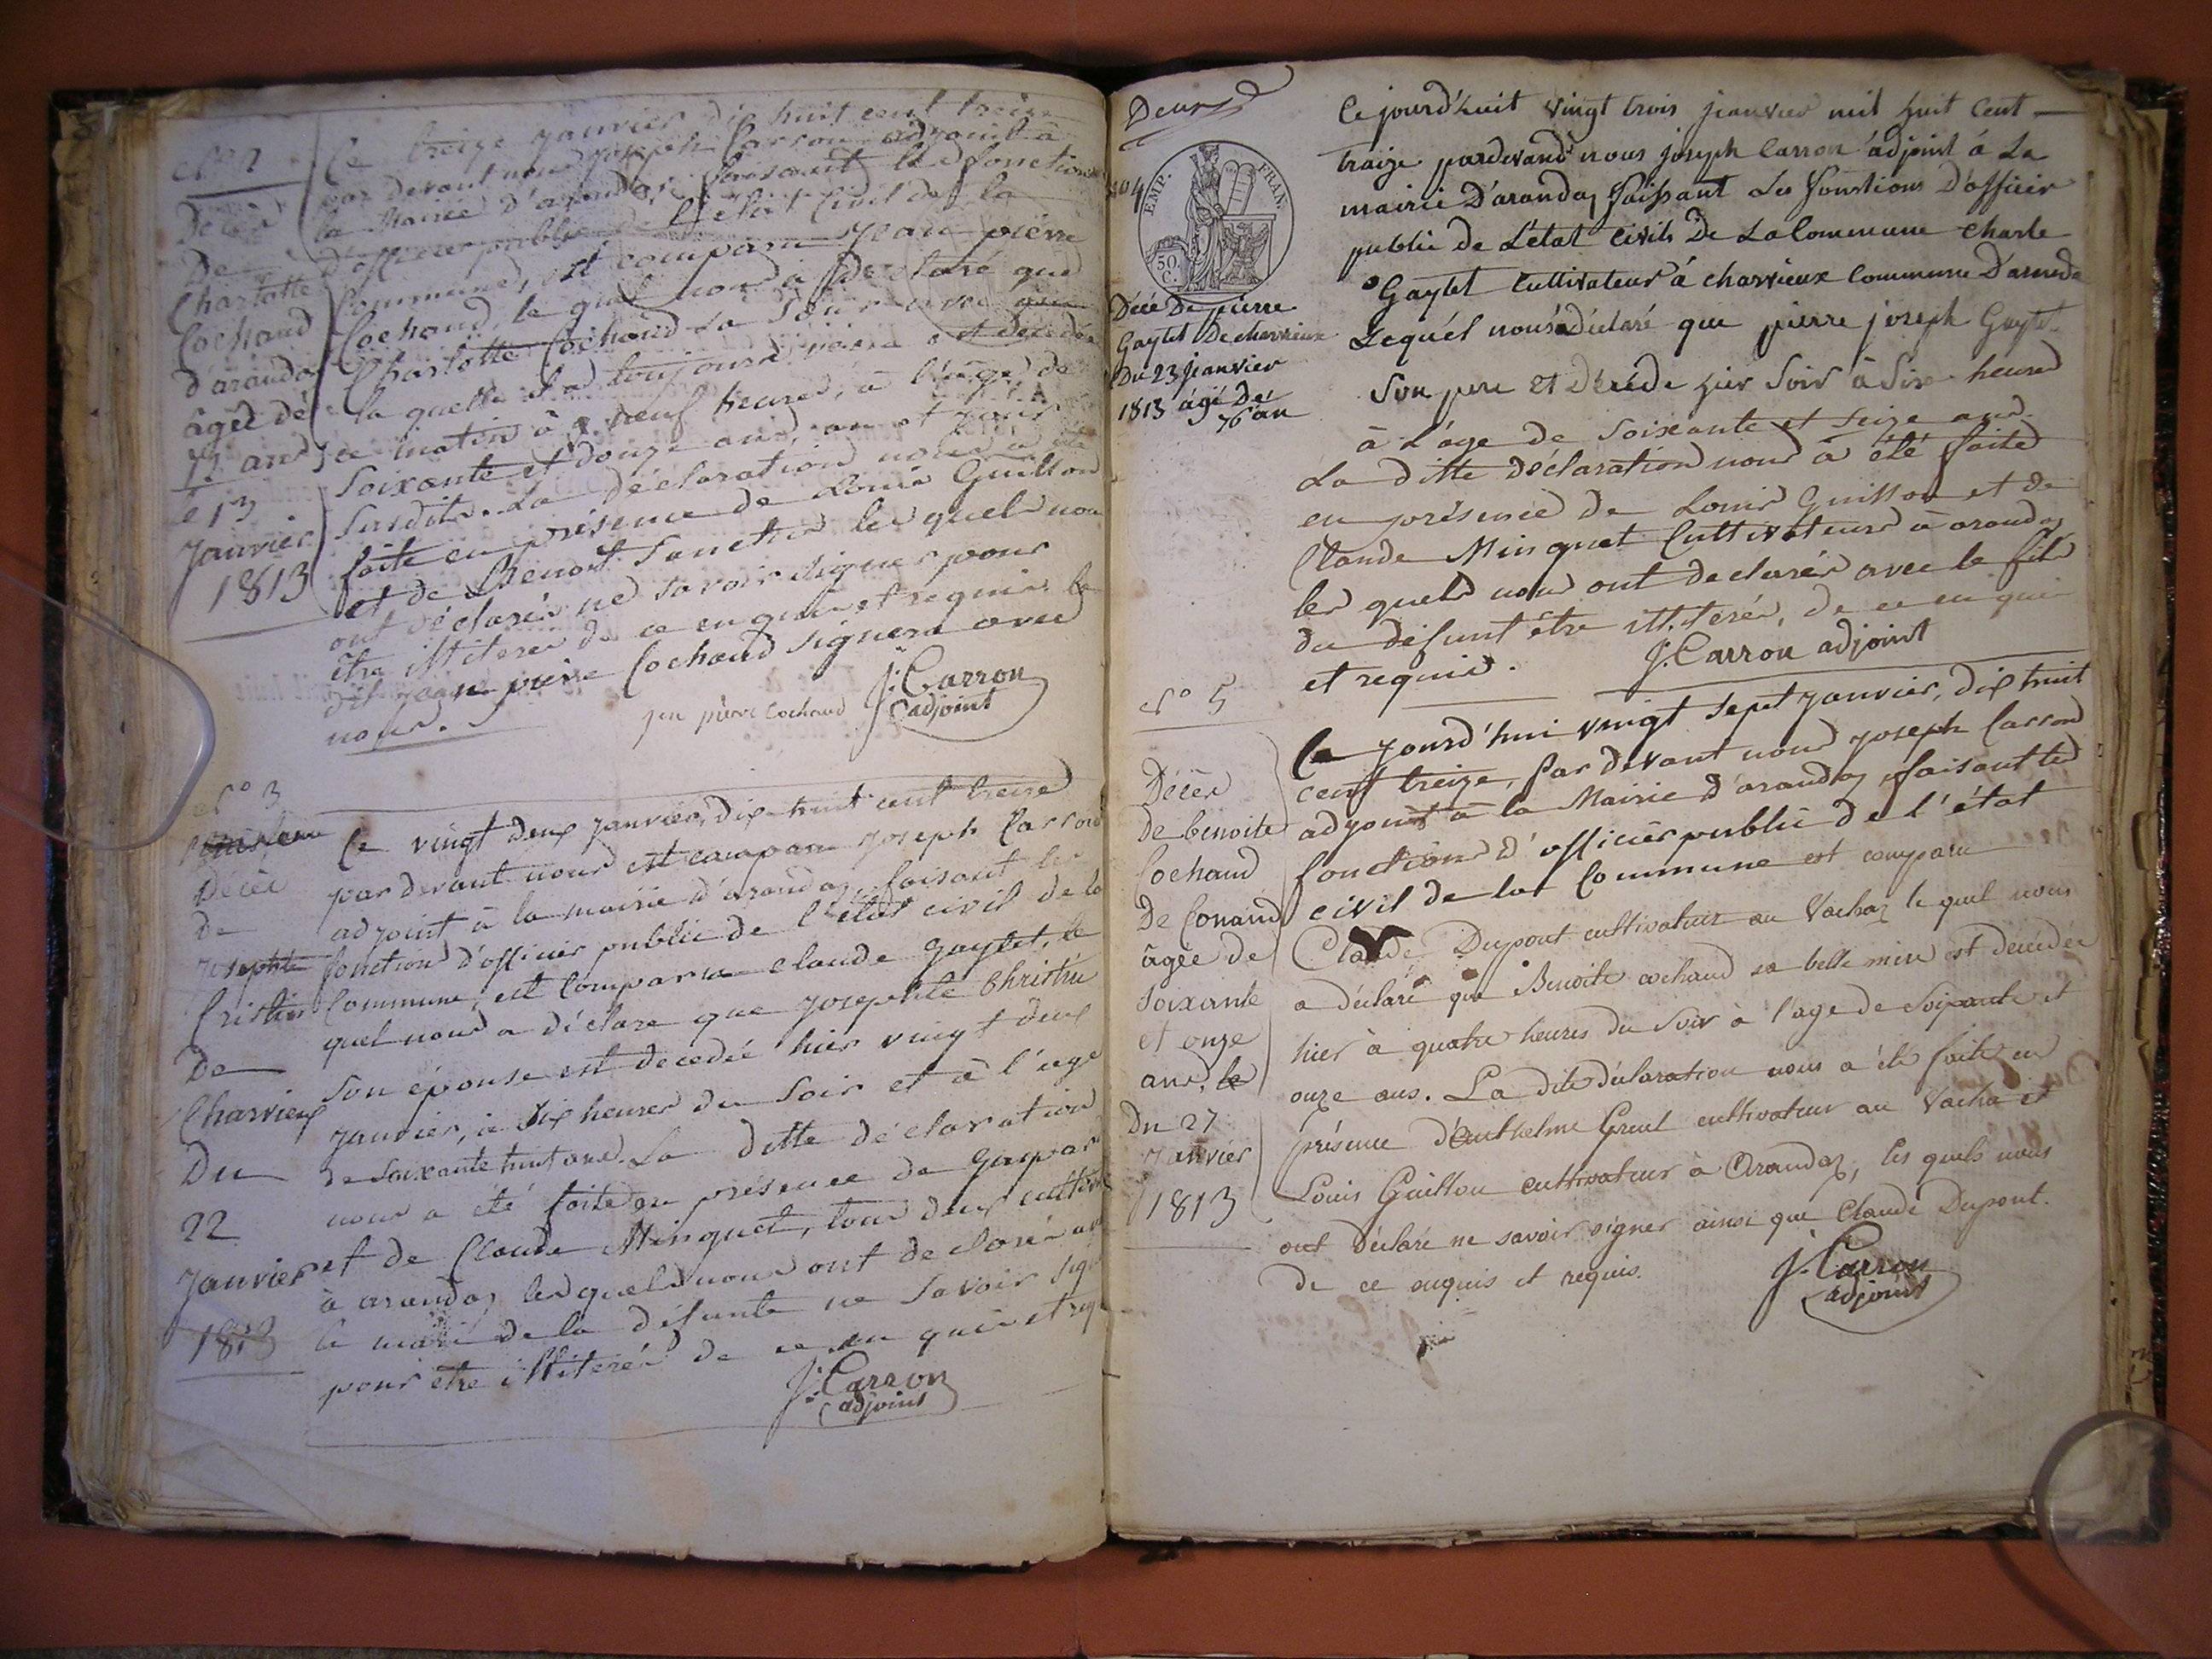 N° 2
Décès
De
Charlotte
Cochaud
d'arandaz
âgée de
72 ans
le 13
Janvier
1813
Ce treize janvier dix huit cent treize
par devant nous Joseph Carron adjoint à
la Mairie d'arandas, faisant les fonctions
d'officier public de l'état civil de la
Commune, est comparu jean pierre
Cochaud, le quel nous a déclaré que
Charlotte Cochaud sa Sœur avec
la quelle il a toujours est décédée
ce matin à neuf heures, à l'âge de
Soixante et douze ans, an et jour
Susdits. La déclaration nous a été
faite en présence de Louis Guillon
et de Benoit les quels nous
ont déclarés ne savoir signer pour
être illiterés de ce enquis et requis. le
dit jean pierre Cochaud signera avec
nous.
jen pierre Cochaud
J. Carron
adjoint
N° 3
Décès
De
Josephte
Cristin
De
Charvieux
Du
22
Janvier
1813
Ce vingt deux janvier, dix huit cent treize
par devant nous est comparu Joseph Carron
adjoint à la mairie d'arandas, faisant les
fonctions d'officier public de l'état civil de la
Commune, est Comparu Claude Gaytet, le
quel nous a déclare que Josephte Christin
son épouse est décédée hier vingt deux
janvier, à dix heures du soir et à l'age
de soixante huit ans. La ditte déclaration
nous a été faite en présence de Gaspar
et de Claude Minguet, tous deux
à arandas, les quels nous ont déclarés
le mari de la défunte ne savoir
pour être illiterés de ce en quis et
J. Carron
adjoint
Deux
N° 4
EMP. FRAN.
50 C.
Décé De pierre
Gaytet De charvieux
Du 23 jeanvier
1813 agé De
76 an
Ce jourd'huit vingt trois jeanvier mil huit Cent
traize pardevand nous joseph Carron adjoint á La
mairie D'arandaz faissant Les Fonstions D'officir
publie de L'etat Civils De La Commune Charle
Gaytet Cultivateur á charvieux Commune D'arneda
Lequél nous a déclaré que pierre joseph Gaytet
Son pere Et Décéde hier Soir à Six heures
à L'age de Soixante et Seize ans.
La ditte déclaration nous à été faite
en présence de Louis Guillon et de
Claude Minguet Cultivateurs à arandas
les quels nous ont déclarés avec le fils
du défunt être illiterés, de ce en quis
et requis.
J. Carron adjoint
N° 5
Décès
De benoite
Cochaud
De Conand
âgée de
soixante
et onze
ans, le
Du 27
Janvier
1813
Ce jourd'hui vingt sept janvier, dix huit
cent treize, par devant nous Joseph Carron
adjoint à la Mairie d'arandas, faisant les
fonctions d'officier public de l'état
civil de la Commune est comparu
Claude Dupont cultivateur au Vachaz le quel nous
a déclaré que Benoite cochaud sa belle mère est décédée
hier à quatre heures du soir à l'age de Soixante et
onze ans. La dite déclaration nous a été faite en
présence d'Enthelme Greul cultivateur au Vacha et
Louis Guillon cultivateur à Arandaz, les quels nous
ont déclaré ne savoir signer ainsi que Claude Dupont.
de ce enquis et requis.
J. Carron
adjoint